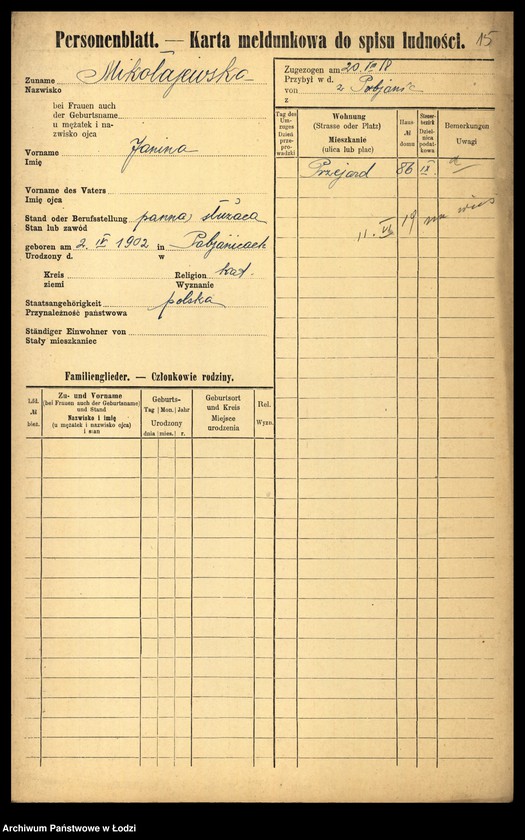 Personenblatt. — Karta meldunkowa do spisu ludności.
15
Zuname Mikołajewska
Nazwisko
bei Frauen auch
der Geburtsname
u mężatek i na-
zwisko ojca
Vorname Janina
Imię
Vorname des Vaters
Imię ojca
Stand oder Berufsstellung panna służąca
Stan lub zawód
geboren am 2. IX 1902 in Pabjanicach
Urodzony d. w
Kreis Religion kat.
ziemi Wyznanie
Staatsangehörigkeit polska
Przynależność państwowa
Ständiger Einwohner von
Stały mieszkaniec
Zugezogen am 20. 18
Przybył w d.
von z Pabjanic
z
Tag des Um-zuges Dzień prze-pro-wadzki
Wohnung (Strasse oder Platz) Mieszkanie (ulica lub plac)
Haus- № domu
Steuer-bezirk Dziel-nica podat-kowa
Bemerkungen Uwagi
Przejazd 86 IX
11. VI 19 na wieś
Familienglieder. — Członkowie rodziny.
Lfd. № bież.
Zu- und Vorname (bei Frauen auch der Geburtsname) und Stand Nazwisko i imię (u mężatek i nazwisko ojca) i stan
Geburts- Tag Mon. Jahr Urodzony dnia mies. r.
Geburtsort und Kreis Miejsce urodzenia
Rel. Wyzn.
Archiwum Państwowe w Łodzi